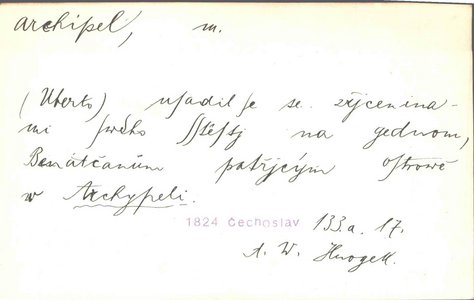 archipel, m.
(Uberto) usadil se se zřjcenina-
mi swého Sstěstj na gednom,
Benátčanům patřjcým ostrowě
w Archypeli.
1824 Čechoslav 133.a.17.
A. W. Hnogek.